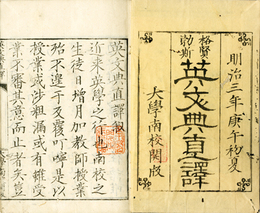 明治三年庚午初夏
格賢勃斯
英文典直譯
大學南校開版
英文典直譯叙
近來英學之行也南校之
生徒日增月加敎師授業
殆不遑于及覆叮嚀是以
授業或涉粗漏或有雖受
業不審其意而止者矣豈